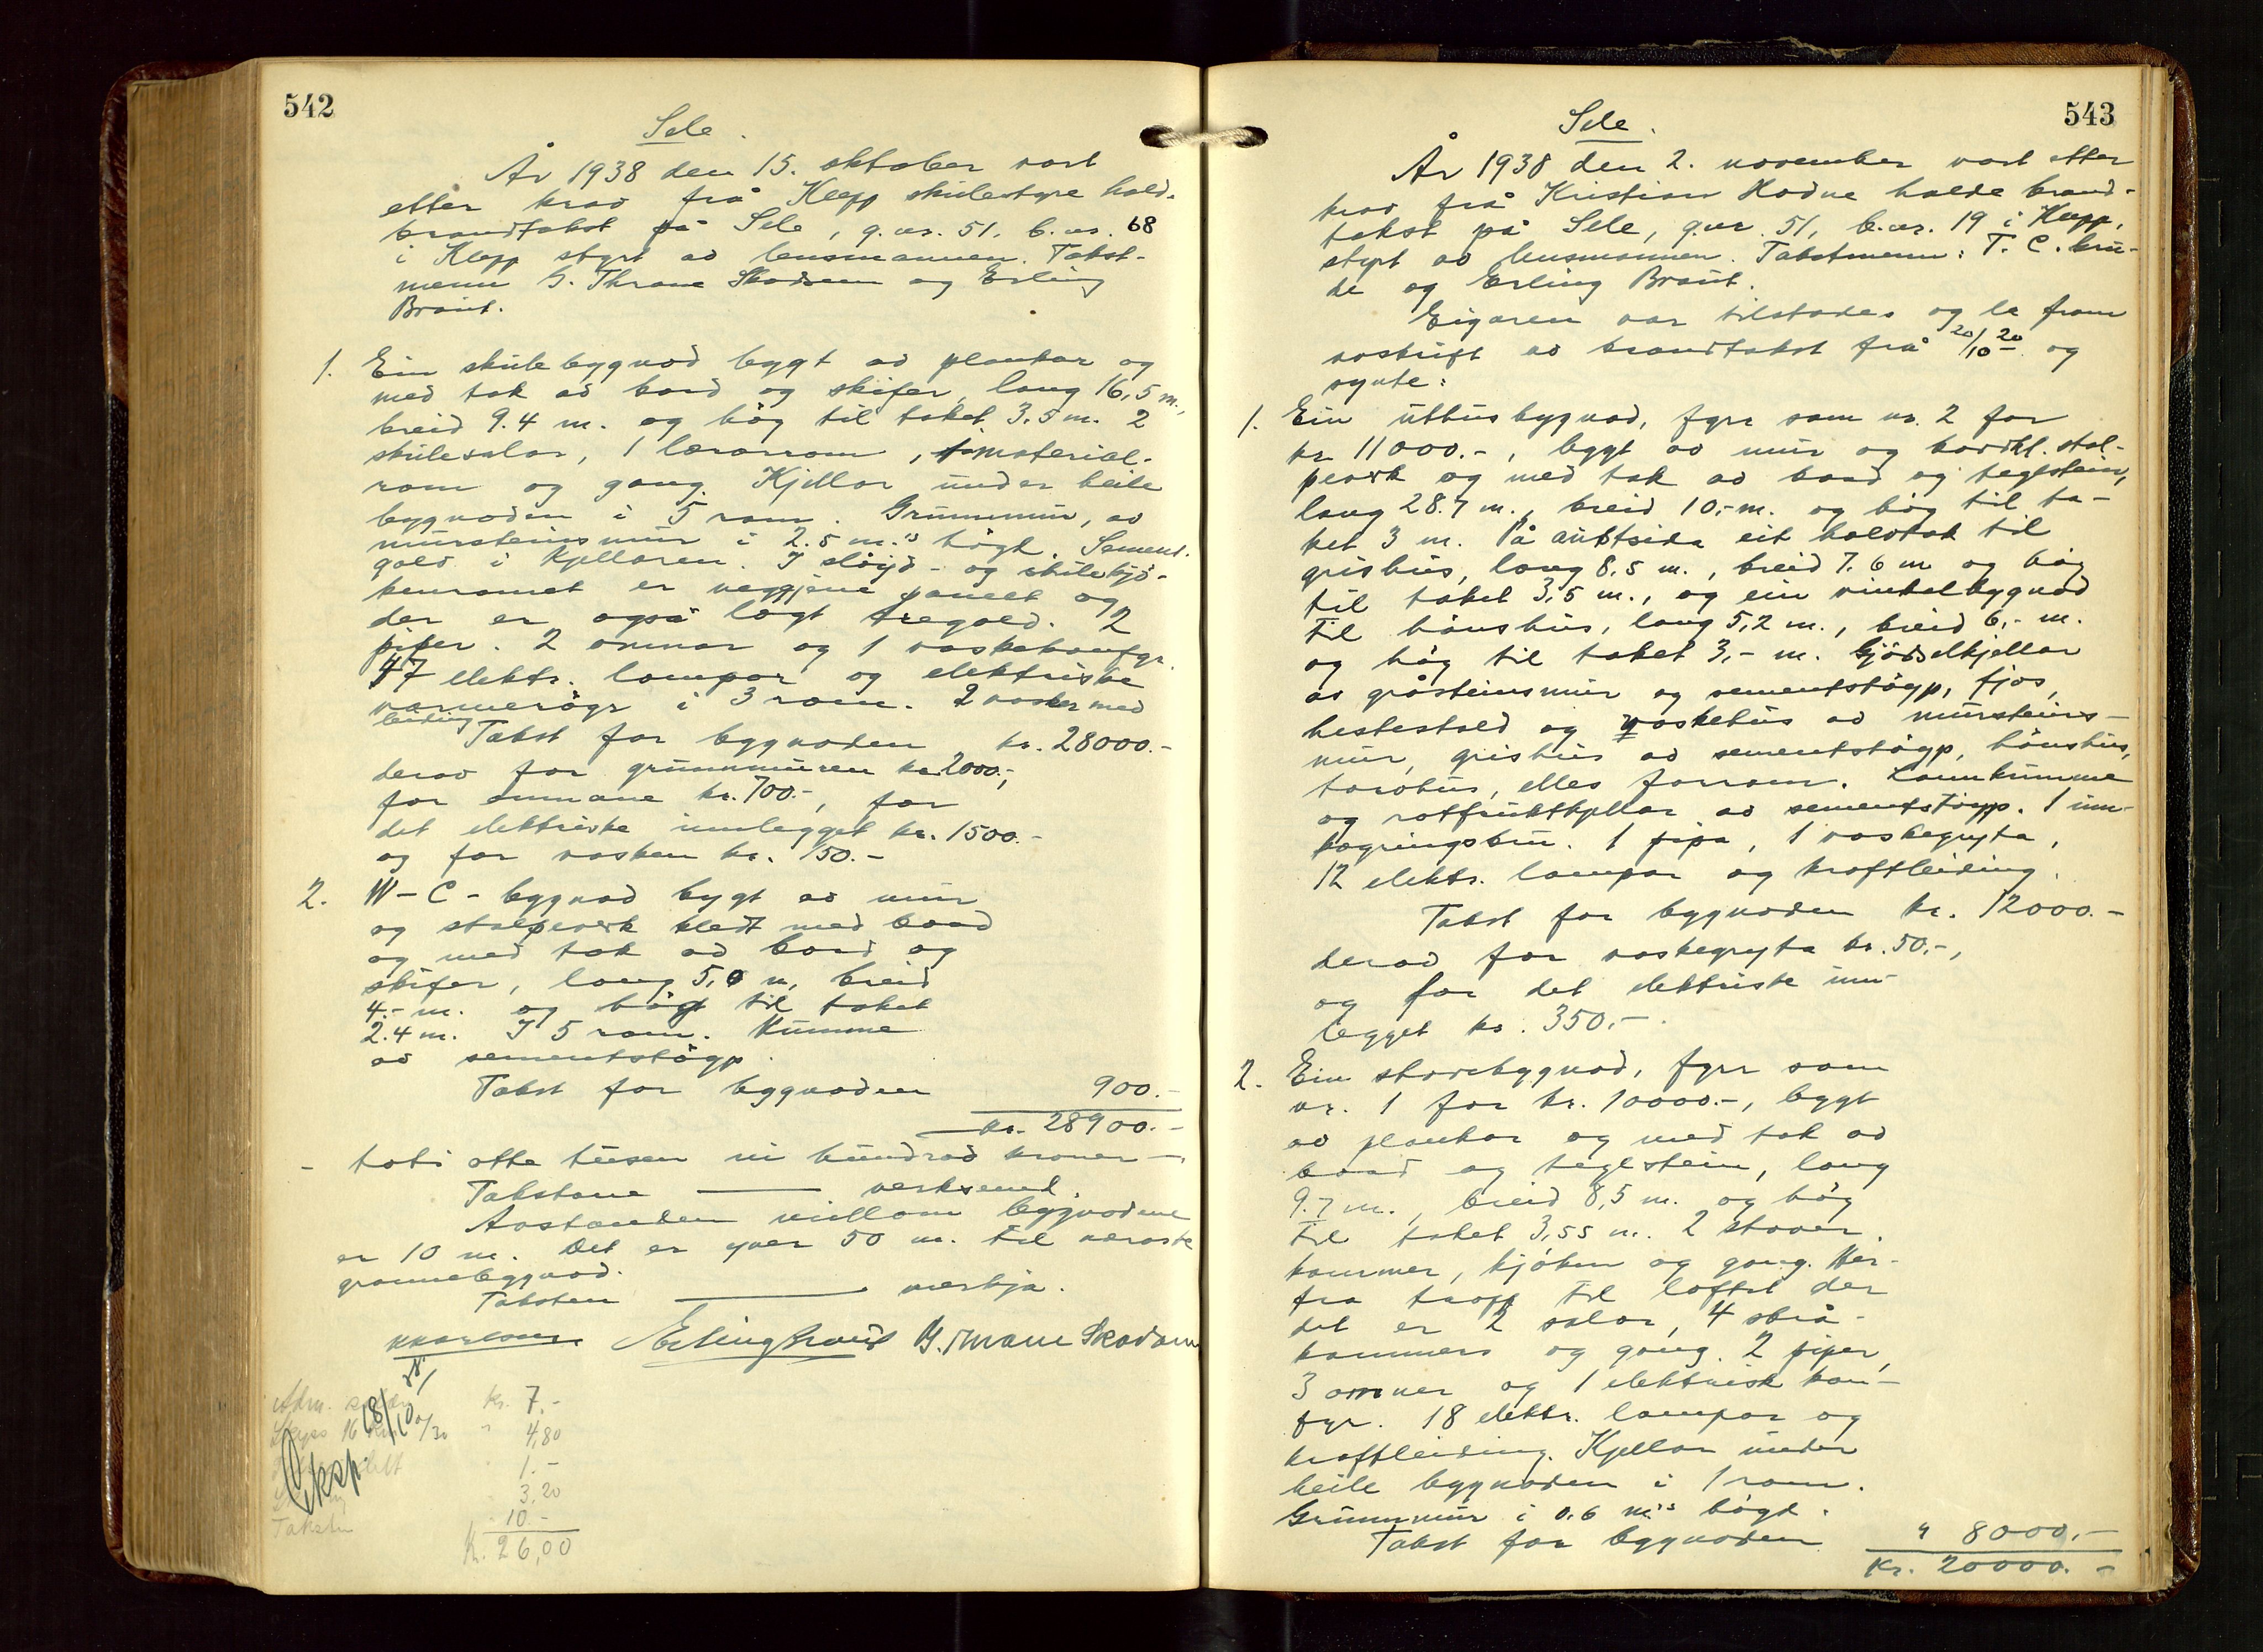 542
Sele.
År 1938 den 15. oktober vart
etter krav frå Klepp skulestyre hald.
brandtakst på Sele, g.nr. 51, b.nr. 68
i Klepp styrt av lensmannen. Takst-
menn G. Thrane Skadsem og Erling
Braut.
1. Ein skulebygnad bygt av plankar og
med tak av bord og skifer, lang 16,5 m.,
breid 9.4 m. og hög til taket 3.5 m. 2
skulesalar, 1 lærarrom, 1 material-
rom og gang. Kjellar under heile
bygnaden i 5 rom. Grunnmur, av
mursteinsmur i 2.5 m.'s högd. Sement-
golv i kjellaren. I slöyd- og skulekjö-
kenromet er veggjene panelt og
der er også lagt tregolv. 2
piper. 2 omnar og 1 vaskekomfyr.
47 elektr. lampor og elektriske
varmerögr i 3 rom. 2 vasker med
leiding
Takst for bygnaden kr. 28000.-
derav for grunnmuren kr. 2000.-,
for omnane kr. 700.-, for
det elektriske innlegget kr. 1500.-
og for vasken kr. 150.-
2. W-C-bygnad bygt av mur
og stolpeverk kledt med bord
og med tak av bord og
skifer, lang 5,0 m, breid
4.- m. og högt til taket
2.4 m. I 5 rom. Kumme
av sementstöyp.
Takst for bygnaden 900.-
kr. 28900.-
- toti otte tusen ni hundrad kroner -.
Takstane — verksemd.
Avstanden millom bygnadene
er 10 m. Det er yver 50 m. til næraste
grannebygnad.
Taksten — merkja.
Erling Braut G. Thrane Skadsem
Adm. kr. 7.-
Skyss 16 km /30 " 4,80
1.-
3,20
Taksten 10.-
Kr. 26,00
Eksp. 18/10
543
Sele.
År 1938 den 2. november vart etter
krav frå Kristian Hodne halde brand-
takst på Sele, g.nr. 51, b.nr. 19 i Klepp,
styrt av lensmannen. Takstmenn: T. C. Gru-
de og Erling Braut.
Eigaren var tilstades og la fram
avskrift av brandtakst frå 20/10 20 og
synte:
1. Ein uthusbygnad, fyrr som nr. 2 for
kr 11000.-, bygt av mur og bordkl. stol-
peverk og med tak av bord og teglstein,
lang 28.7 m., breid 10,- m. og hög til ta-
ket 3 m. På austsida eit halvtak til
grishus, lang 8.5 m., breid 7.6 m og hög
til taket 3,5 m., og ein vinkelbygnad
til hönshus, lang 5,2 m., breid 6,- m.
og hög til taket 3,- m. Gjödselkjellar
av gråsteinsmur og sementstöyp, fjos,
hestestald og vaskehus av mursteins-
mur, grishus av sementstöyp, hönshus,
torvhus, elles forrom. Lannkumme
og rotfruktkjellar av sementstöyp. 1 inn-
køyringsbru. 1 pipa, 1 vaskegryta,
12 elektr. lampor og kraftleiding.
Takst for bygnaden kr. 12000.-
derav for vaskegryta kr. 50.-,
og for det elektriske inn-
legget kr. 350.-.
2. Ein stovebygnad, fyrr som
nr. 1 for kr. 10000.-, bygt
av plankar og med tak av
bord og teglstein, lang
9.7 m., breid 8,5 m. og hög
til taket 3,55 m. 2 stover.
kammer, kjöken og gang. Her-
fra tropp til loftet der
det er 2 salar, 4 skrå-
kammers og gang. 2 piper,
3 omner og 1 elektrisk kom-
fyr. 18 elektr. lampor og
kraftleiding. Kjellar under
heile bygnaden i 1 rom.
Grunnmur i 0.6 m's högd.
Takst for bygnaden " 8000.-
Kr. 20000.-